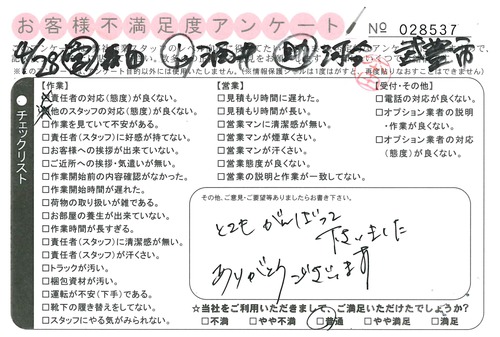 お客様不満足度アンケート
№ 028537
チェックリスト
【作業】
□責任者の対応(態度)が良くない。
□他のスタッフの対応(態度)が良くない。
□作業を見ていて不安がある。
□責任者(スタッフ)に好感が持てない。
□お客様への挨拶が出来ていない。
□ご近所への挨拶・気遣いが無い。
□作業開始前の内容確認がなかった。
□作業開始時間が遅れた。
□荷物の取り扱いが雑である。
□お部屋の養生が出来ていない。
□作業時間が長すぎる。
□責任者(スタッフ)に清潔感が無い。
□責任者(スタッフ)が汗くさい。
□トラックが汚い。
□梱包資材が汚い。
□運転が不安(下手)である。
□靴下の履き替えをしてない。
□スタッフにやる気がみられない。
【営業】
□見積もり時間に遅れた。
□見積もり時間が長い。
□営業マンに清潔感が無い。
□営業マンが煙草くさい。
□営業マンが汗くさい。
□営業態度が良くない。
□営業の説明と作業が一致してない。
【受付・その他】
□電話の対応が良くない。
□オプション業者の説明
・作業が良くない。
□オプション業者の対応
(態度)が良くない。
その他、ご意見・ご要望等ありましたらお書き下さい。
とても がんばって
下さいました
ありがとうございます
☆当社をご利用いただきまして、ご満足いただけたでしょうか?
□不満 □やや不満 □普通 □やや満足 □満足